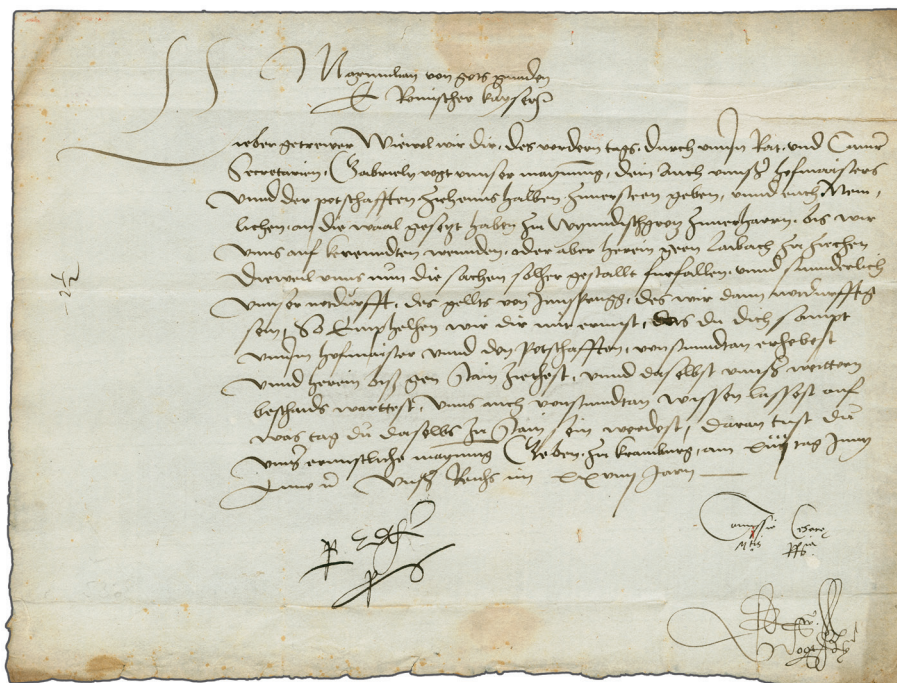 Maximilian von gots gnaden
E. Romischer kayser
Lieber getrewer Wiewol wir dir, des vordern tags, durch unnsern Rat, und Camer
Secretarien, Gabrieln vogt unnser maynung, dein auch unnsers hofmaisters
Unnd der potschafften ziehenns halben zuversteen geben, unnd euch Nem,
lichen, an die waal gesetzt haben zu Wynndischgretz zuverharrn, bis wir
unns auf kerenndten, wennden, oder aber herein geen Laibach zu ziechen
Dieweil unns nun die sachen solher gestallt furfallen, unnd sunnderlich
Unnser notdurfft, des gellts von Innsprugg, des wir dann notdurfftig
sein, So Emphelhen wir dir mit ernnst, das du dich sampt
unnserm hofmaister unnd den Potschafften, vonstundtan erhebest
unnd herein biss gen Stain ziehest, unnd daselbst unnsers weittern
beschaids warttest, Unns auch vonstundtan wissen lassest auf
was tag du daselbs zu Stain sein werdest, Daran tust du
unnser ernnstliche maynung Geben, zu Krainburg, am tag Juny
Anno Unnsers Reichs im Jarn
p
Comissio Cesaree
Mtis pp
Vogt